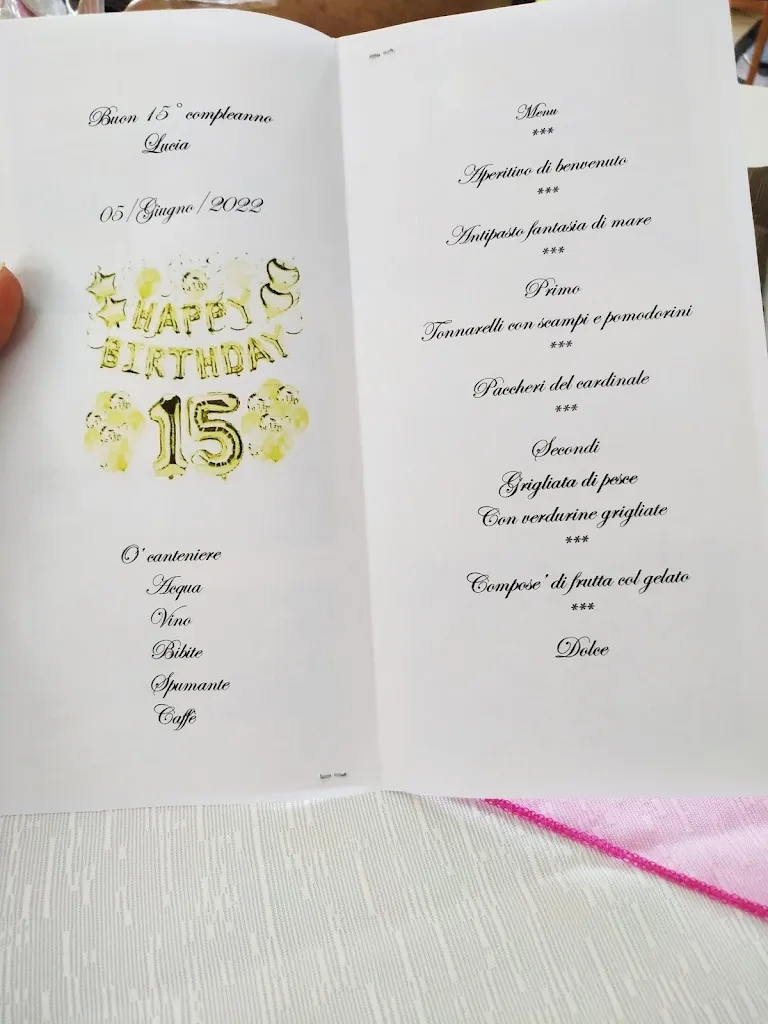 Buon 15° compleanno
Lucia
05/Giugno/2022
HAPPY
BIRTHDAY
15
O' canteniere
Acqua
Vino
Bibite
Spumante
Caffè
Menu
***
Aperitivo di benvenuto
***
Antipasto fantasia di mare
***
Primo
Tonnarelli con scampi e pomodorini
***
Paccheri del cardinale
***
Secondi
Grigliata di pesce
Con verdurine grigliate
***
Compose' di frutta col gelato
***
Dolce